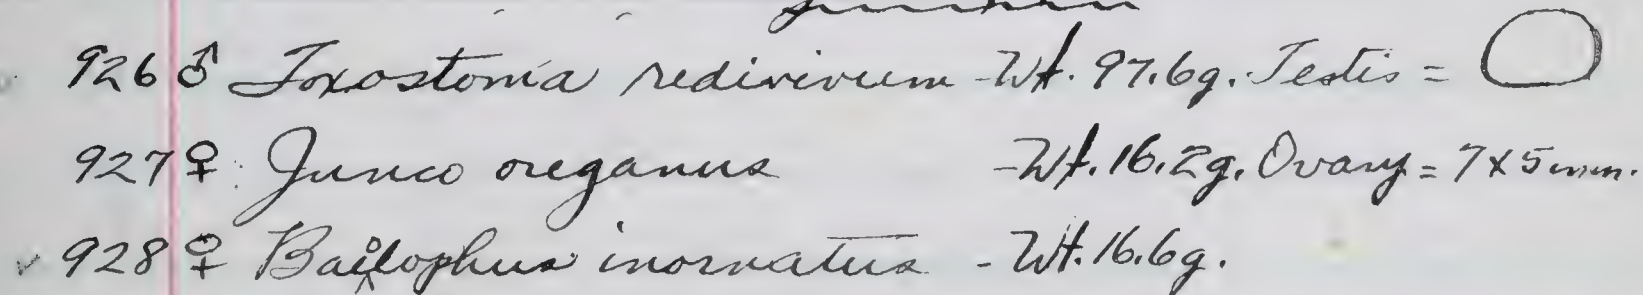 926 ♂ Toxostoma redivivum - Wt. 97.6g. Testis =
927 ♀ Junco oreganus - Wt. 16.2g. Ovary = 7 x 5 mm.
✓ 928 ♀ Baeolophus inornatus - Wt. 16.6g.